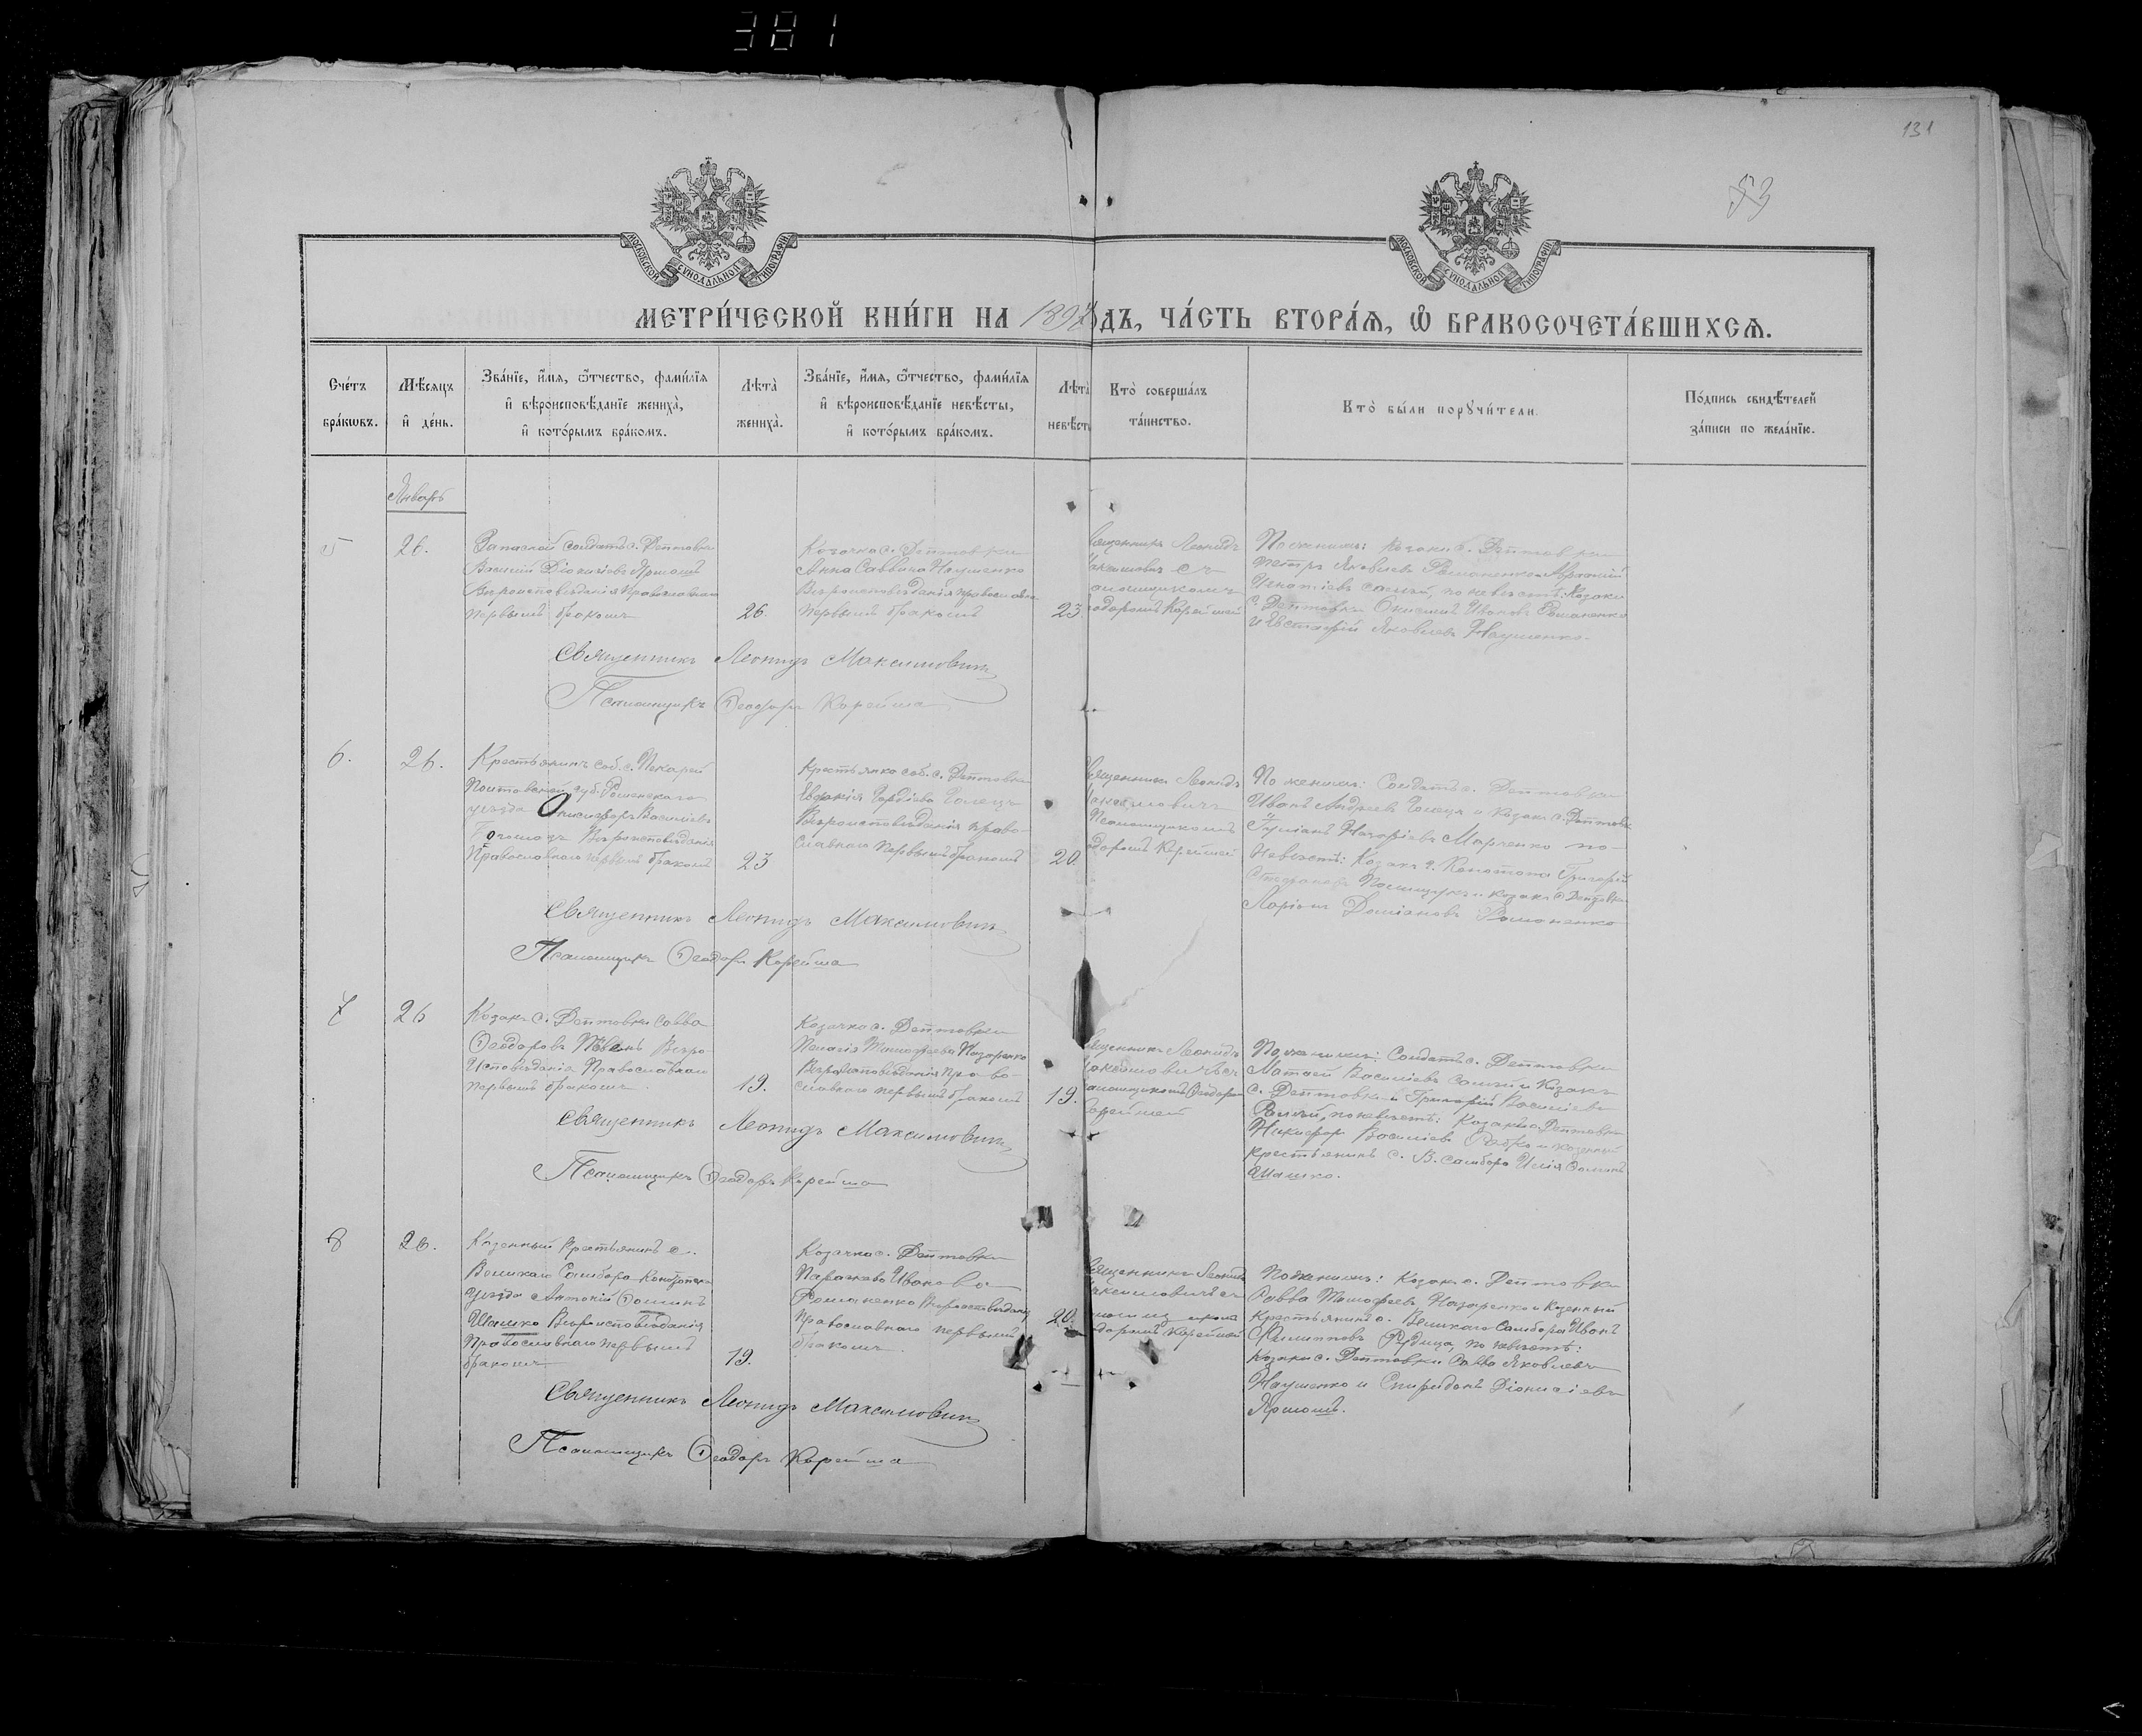 381
131
53
МОСКОВСКОЙ СѴНОДАЛЬНОЙ ТИПОГРАФІИ
МОСКОВСКОЙ СѴНОДАЛЬНОЙ ТИПОГРАФІИ
МЕТРИ́ЧЕСКОЙ КНИ́ГИ НА 1897 ДЪ, ЧА́СТЬ ВТОРА́Ѧ, Ѡ҆ БРАКОСОЧЕТА́ВШИХСѦ.
Сче́тъ бра́кѡвъ.
Мѣ́сѧцъ и҆ де́нь.
Зва́нїе, и҆́мѧ, ѻ҆́тчество, фами́лїѧ
и҆ вѣроисповѣ́данїе жениха̀,
и҆ кото́рымъ бра́комъ.
Лѣта̀ жениха̀.
Зва́нїе, и҆́мѧ, ѻ҆́тчество, фами́лїѧ
и҆ вѣроисповѣ́данїе невѣ́сты,
и҆ кото́рымъ бра́комъ.
Лѣта̀ невѣ́сты
Кто̀ соверша́лъ та́инство.
Кто̀ бы́ли порꙋчи́тели.
По́дпись свидѣ́телей за́писи по жела́нїю.
Январь
5
26.
Запасной солдатъ с. Дептовки
Василій Діонисіевъ Ярмошъ
Вѣроисповѣданія Православнаго
первымъ бракомъ
26.
Козачка с. Дептовки
Анна Саввина Наушенко
Вѣроисповѣданія православна
первымъ бракомъ
23.
вященникъ Леонидъ
аксимовичъ съ
аломщикомъ
одоромъ Корейшей
По женихѣ: Козаки с. Дептовки
Петръ Яковлевъ Романенко и
Игнатіевъ по невѣстѣ: Козаки
с. Дептовки Онисимъ Ивановъ Романенко
и Евстафій Яковлевъ Наушенко.
Священникъ Леонидъ Максимовичъ
Псаломщикъ Ѳеодоръ Корейша
6.
26.
Крестьянинъ соб. с. Пекарей
Полтавской губ. Роменскаго
уѣзда Онисифоръ Васильевъ
Вѣроисповѣданія
Православнаго первымъ бракомъ
23
Крестьянка соб. с. Дептовки
Евдокія Гордіева
Вѣроисповѣданія право-
славнаго первымъ бракомъ
20.
вященникъ Леонидъ
аксимовичъ
Псаломщикомъ
доромъ Корейшей
По женихѣ: Солдатъ с. Дептовки
Иванъ Андреевъ и козакъ с. Дептовки
Назаріевъ Марченко по
Невѣстѣ: Козакъ г. Конотопа Григорій
Стефановъ и козакъ с. Дептовки
Ларіонъ Даміановъ Романенко
Священникъ Леонидъ Максимовичъ
Псаломщикъ Ѳеодоръ Корейша
7
26
Козакъ с. Дептовки Савва
Ѳеодоровъ Вѣро-
исповѣданія Православнаго
первымъ бракомъ.
19.
Козачка с. Дептовки
Пелагія Тимофеева Назаренко
Вѣроисповѣданія право-
славнаго первымъ бракомъ
19.
вященникъ Леонидъ
аксимовичъ съ
аломщикомъ Ѳеодоро
орейшей
По женихѣ: Солдатъ с. Дептовки
Матвей Васильевъ и Козакъ
с. Дептовки Григорій Васильевъ
по невѣстѣ: Козакъ с. Дептовки
Никифоръ Васильевъ и казенный
крестьянинъ с. В. Самбора Илія Ѳоминъ
Шашко.
Священникъ Леонидъ Максимовичъ
Псаломщикъ Ѳеодоръ Корейша
8
26.
Казенный крестьянинъ с.
Великаго Самбора Конотопск
уѣзда Антоній Ѳоминъ
Шашко Вѣроисповѣданія
Православнаго первымъ
бракомъ
19.
Козачка с. Дептовки
Параскева Иванова
Романенко Вѣроисповѣданія
Православнаго первымъ
бракомъ.
20.
вященникъ Леонидъ
аксимовичъ съ
доромъ Корейшей
По женихѣ: Козакъ с. Дептовки
Савва Тимофеевъ Назаренко и Казенный
Крестьянинъ с. Великаго Самбора Иванъ
Филипповъ по невѣстѣ:
Козаки с. Дептовки Савва Яковлевъ
Наушенко и Спиридонъ Діонисіевъ
Ярмошъ.
Священникъ Леонидъ Максимовичъ
Псаломщикъ Ѳеодоръ Корейша